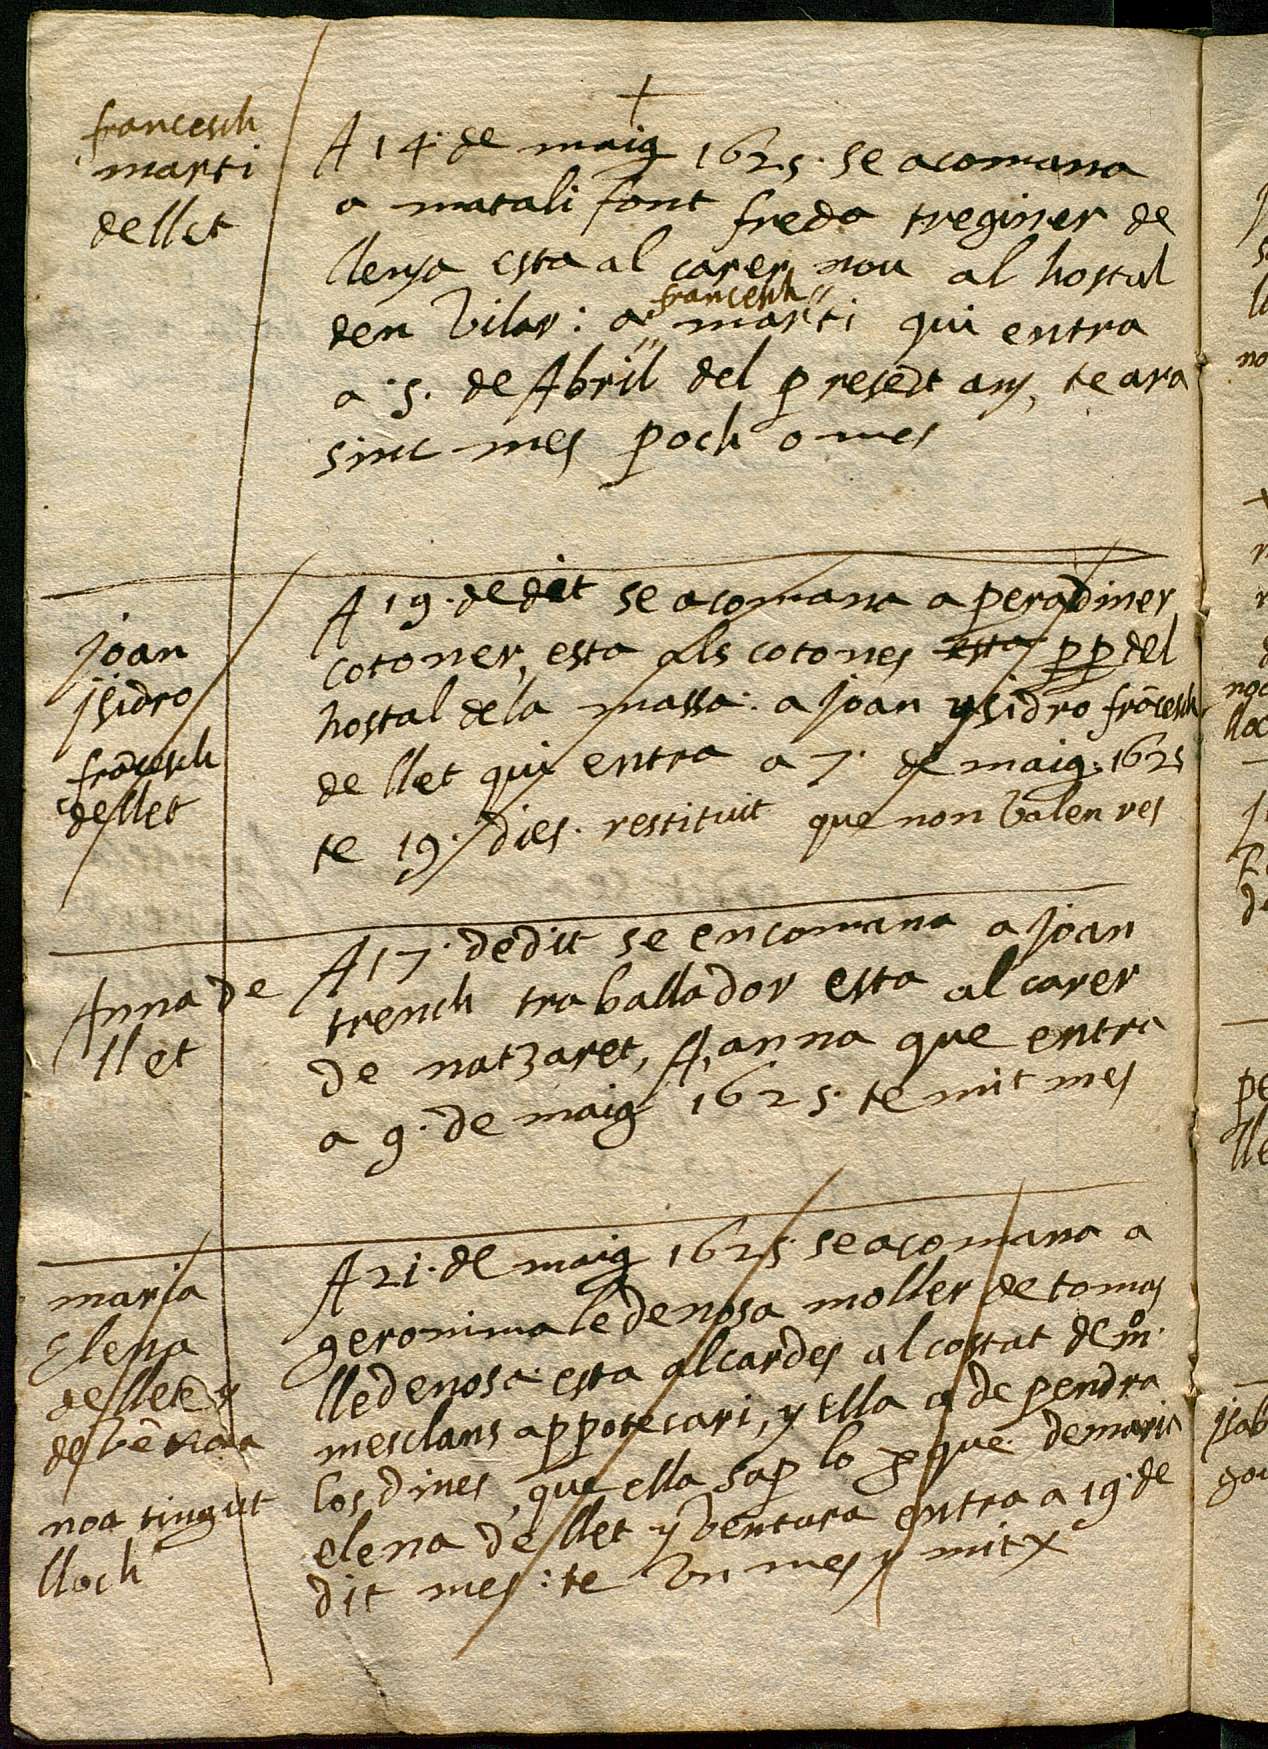 francesch
marti
de llet
A 14. de maig 1625. se acomana
a matali font freda treginer de
llenya esta al carer nou al hostal
den Vilar: a francesch marti qui entra
a 5. de Abril del presedt any, te ara
sinc mes poch o mes
joan
jsidro
frācesch
de llet
A 19. de dit se acomana a pera diner
cotoner, esta als cotones esta pp del
hostal de la massa: a joan ysidro frācesch
de llet qui entra a 7. de maig. 1625
te 19. dies. restituit que non valen res
Anna de
llet
A 17. de dit se encomana a joan
trench traballador esta al carer
de natzaret, A, anna que entra
a 9. de maig 1625. te mit mes
maria
Elena
de llet y
de vētura
noa tingut
lloch
A 21. de maig 1625. se acomana a
geronima ledenosa moller de tomas
lledenosa esta alcardes al costat de mº.
mesclans appotecari, y ella a de pendra
los dines, que ella sap lo p que. de maria
elena de llet y ventura entra a 19. de
dit mes: te un mes y mitx